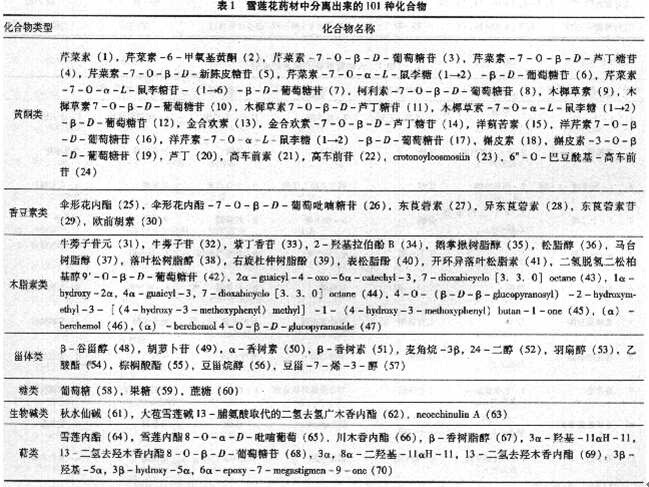 表 1 雪莲花药材中分离出来的 101 种化合物
化合物类型 化合物名称
芹菜素（1），芹菜素-6-甲氧基黄酮（2），芹菜素-7-O-β-D-葡萄糖苷（3），芹菜素-7-O-β-D-芦丁糖苷
（4），芹菜素-7-O-β-D-新陈皮糖苷（5），芹菜素-7-O-α-L-鼠李糖（1→2）-β-D-葡萄糖苷（6），芹菜素
-7-O-α-L-鼠李糖苷-（1→6）-β-D-葡萄糖苷（7），柯利素-7-O-β-D-葡萄糖苷（8），木樨草素（9），木
樨草素7-O-β-D-葡萄糖苷（10），木樨草素7-O-β-D-芦丁糖苷（11），木樨草素-7-O-α-L-鼠李糖（1→2）
黄酮类
-β-D-葡萄糖苷（12），金合欢素（13），金合欢素-7-O-β-D-芦丁糖苷（14），洋蓟素（15），洋芹素7-O-β
-D-葡萄糖苷（16），洋芹素-7-O-α-L-鼠李糖（1→2）-β-D-葡萄糖苷（17），槲皮素（18），槲皮素-3-O-β
-D-葡萄糖苷（19），芦丁（20），高车前素（21），高车前苷（22），crotonoylcosmosiin（23），6"-O-巴豆酰基-高车前
苷（24）
香豆素类
伞形花内酯（25），伞形花内酯-7-O-β-D-葡萄吡喃糖苷（26），东莨菪素（27），异东莨菪素（28），东莨菪素苷
（29），欧前胡素（30）
牛蒡子苷元（31），牛蒡子苷（32），紫丁香苷（33），2-羟基拉伯酚 B（34），鹅掌楸树脂醇（35），松脂醇（36），马台
树脂醇（37），落叶松树脂醇（38），右旋杜仲树脂酚（39），表松脂酚（40），开环异落叶松脂素（41），二氢脱氢二松柏
基醇9'-O-β-D-葡萄糖苷（42），2α-guaicyl-4-oxo-6α-catechyl-3，7-dioxabicyclo［3．3．0］octane（43），1α-
木脂素类
hydroxy-2α，4α-guaicyl-3，7-dioxabicyclo［3．3．0］octane（44），4-O-（β-D-β-glucopyranosyl）-2-hydroxym-
ethyl-3-［（4-hydroxy-3-methoxyphenyl）methyl］-1-（4-hydroxy-3-methoxyphenyl）butan-1-one（45），（α）-
berchemol（46），（α）-berchemol 4-O-β-D-glucopyranoside（47）
β-谷甾醇（48），胡萝卜苷（49），α-香树素（50），β-香树素（51），麦角烷-3β，24-二醇（52），羽扇醇（53），乙
甾体类
酸酯（54），棕榈酸酯（55），豆甾烷醇（56），豆甾-7-烯-3-醇（57）
糖类 葡萄糖（58），果糖（59），蔗糖（60）
生物碱类 秋水仙碱（61），大苞雪莲碱13-脯氨酸取代的二氢去氢广木香内酯（62），neoechinulin A（63）
雪莲内酯（64），雪莲内酯8-O-α-D-吡喃葡萄（65），川木香内酯（66），β-香树脂醇（67），3α-羟基-11αH-11，
萜类
13-二氢去羟木香内酯8-O-β-D-葡萄糖苷（68），3α，8α-二羟基-11αH-11，13-二氢去羟木香内酯（69），3β-
羟基-5α，3β-hydroxy-5α，6α-epoxy-7-megastigmen-9-one（70）